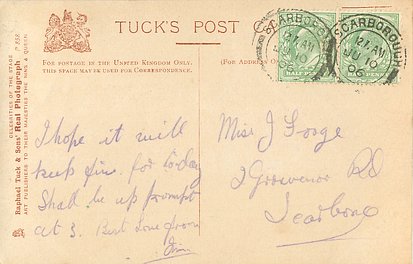 TUCK'S POST
FOR POSTAGE IN THE UNITED KINGDOM ONLY.
THIS SPACE MAY BE USED FOR CORRESPONDENCE.
(FOR ADD
CELEBRITIES OF THE STAGE
Raphael Tuck & Sons' Real Photograph
ART PUBLISHERS TO THEIR MAJESTIES THE KING & QUEEN
SCARBOROUGH
12 AM
JU 10
06
SCARBOROUGH
12 AM
JU 10
06
I hope it will
keep fine for to-day
Shall be up prompt
at 3. Best love from
Miss J
2 Grosvenor Rd
Scarboro